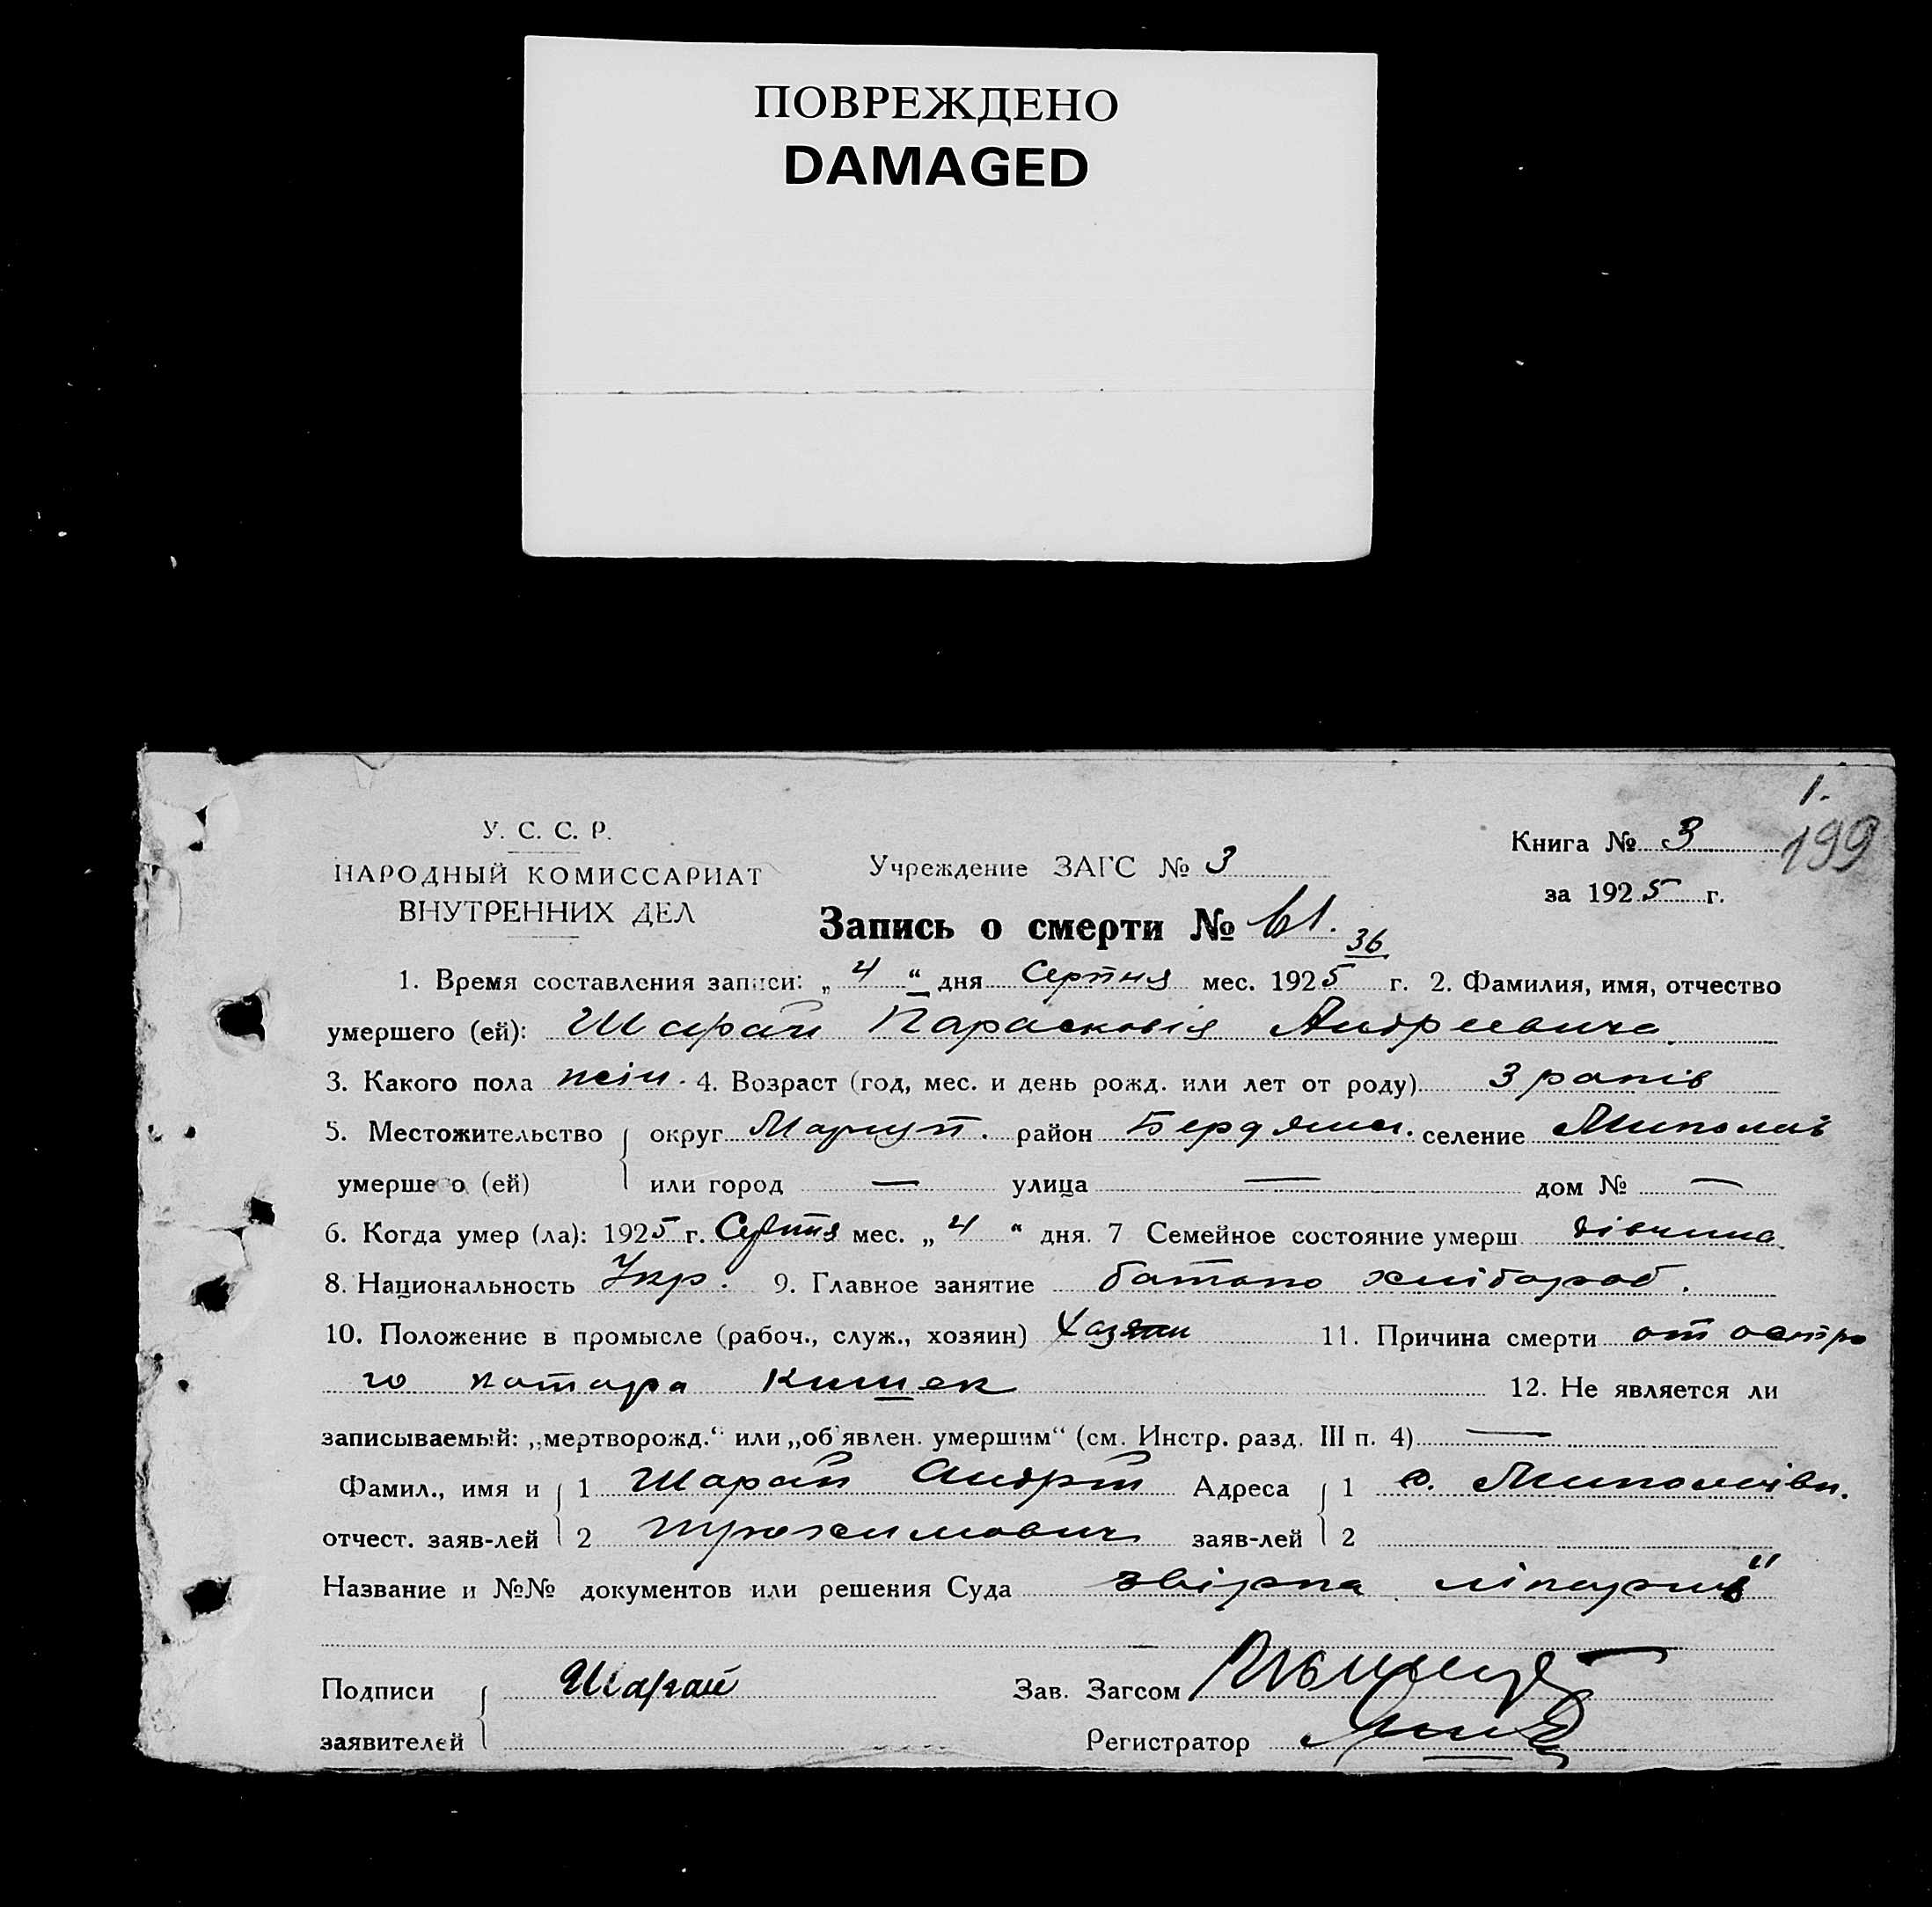 ПОВРЕЖДЕНО
DAMAGED
1.
199
У. С. С. Р.
НАРОДНЫЙ КОМИССАРИАТ
ВНУТРЕННИХ ДЕЛ
Учреждение ЗАГС № 3
Книга № 3
за 1925 г.
Запись о смерти № 61.
36
1. Время составления записи: „4“ дня Серпня мес. 1925 г. 2. Фамилия, имя, отчество
умершего (ей): Шарай Парасковія Андреевича
3. Какого пола жін. 4. Возраст (год, мес. и день рожд. или лет от роду) 3 років
5. Местожительство округ Мариуп. район Бердянск. селение
умершего (ей) или город — улица — дом № —
6. Когда умер (ла): 1925 г. Серпня мес. „4“ дня. 7 Семейное состояние умерш. дівчина
8. Национальность Укр. 9. Главное занятие батько хлібороб.
10. Положение в промысле (рабоч., служ., хозяин) Хазяин 11. Причина смерти от остро
го катара кишек 12. Не является ли
записываемый: „мертворожд.“ или „об'явлен. умершим“ (см. Инстр. разд. III п. 4) —
Фамил., имя и 1 Шарай Андрій Адреса 1 с.
отчест. заяв-лей 2 Трохимович заяв-лей 2
Название и №№ документов или решения Суда
Подписи Шарай Зав. Загсом
заявителей Регистратор